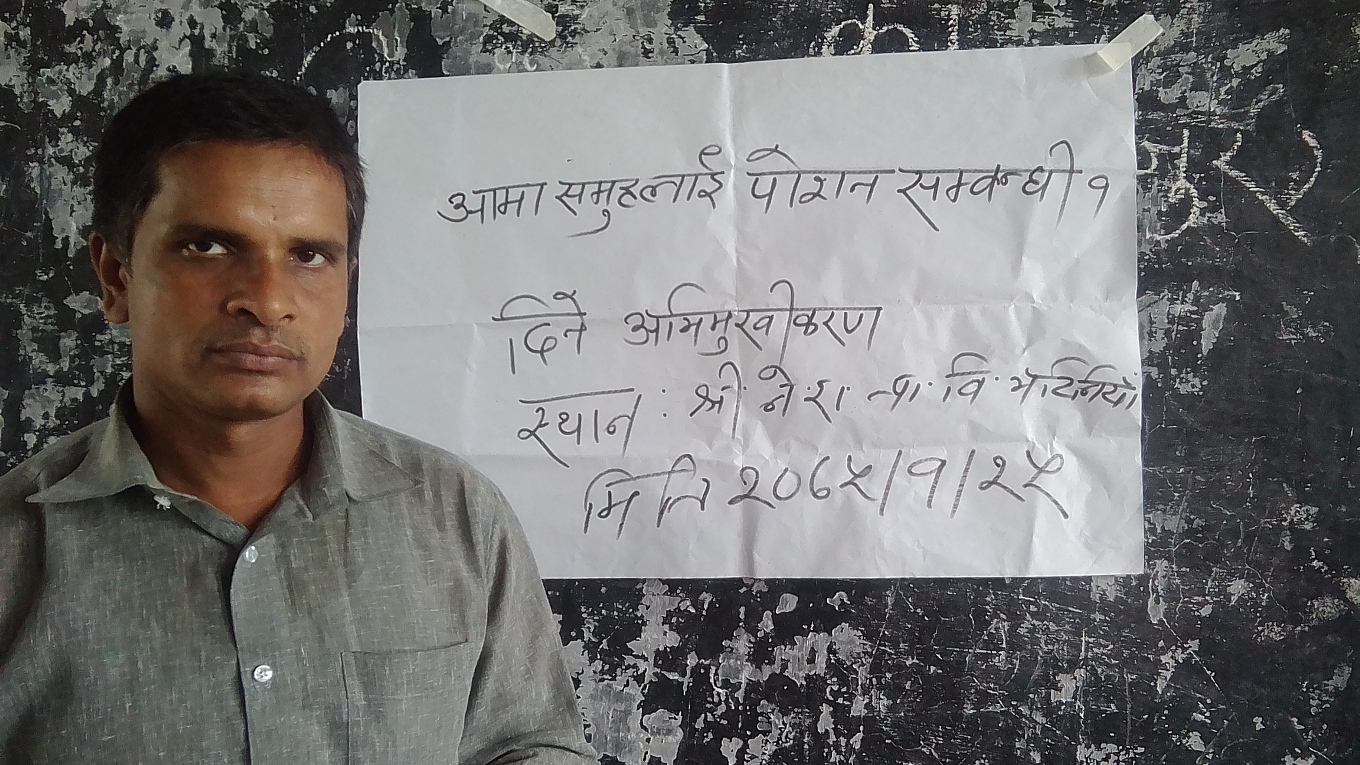 का
आमा समुहलाई पोशन सम्बन्धी १
दिने अभिमुखीकरण
स्थान : श्री ने रा प्रा वि
मिति २०६५/१/२५